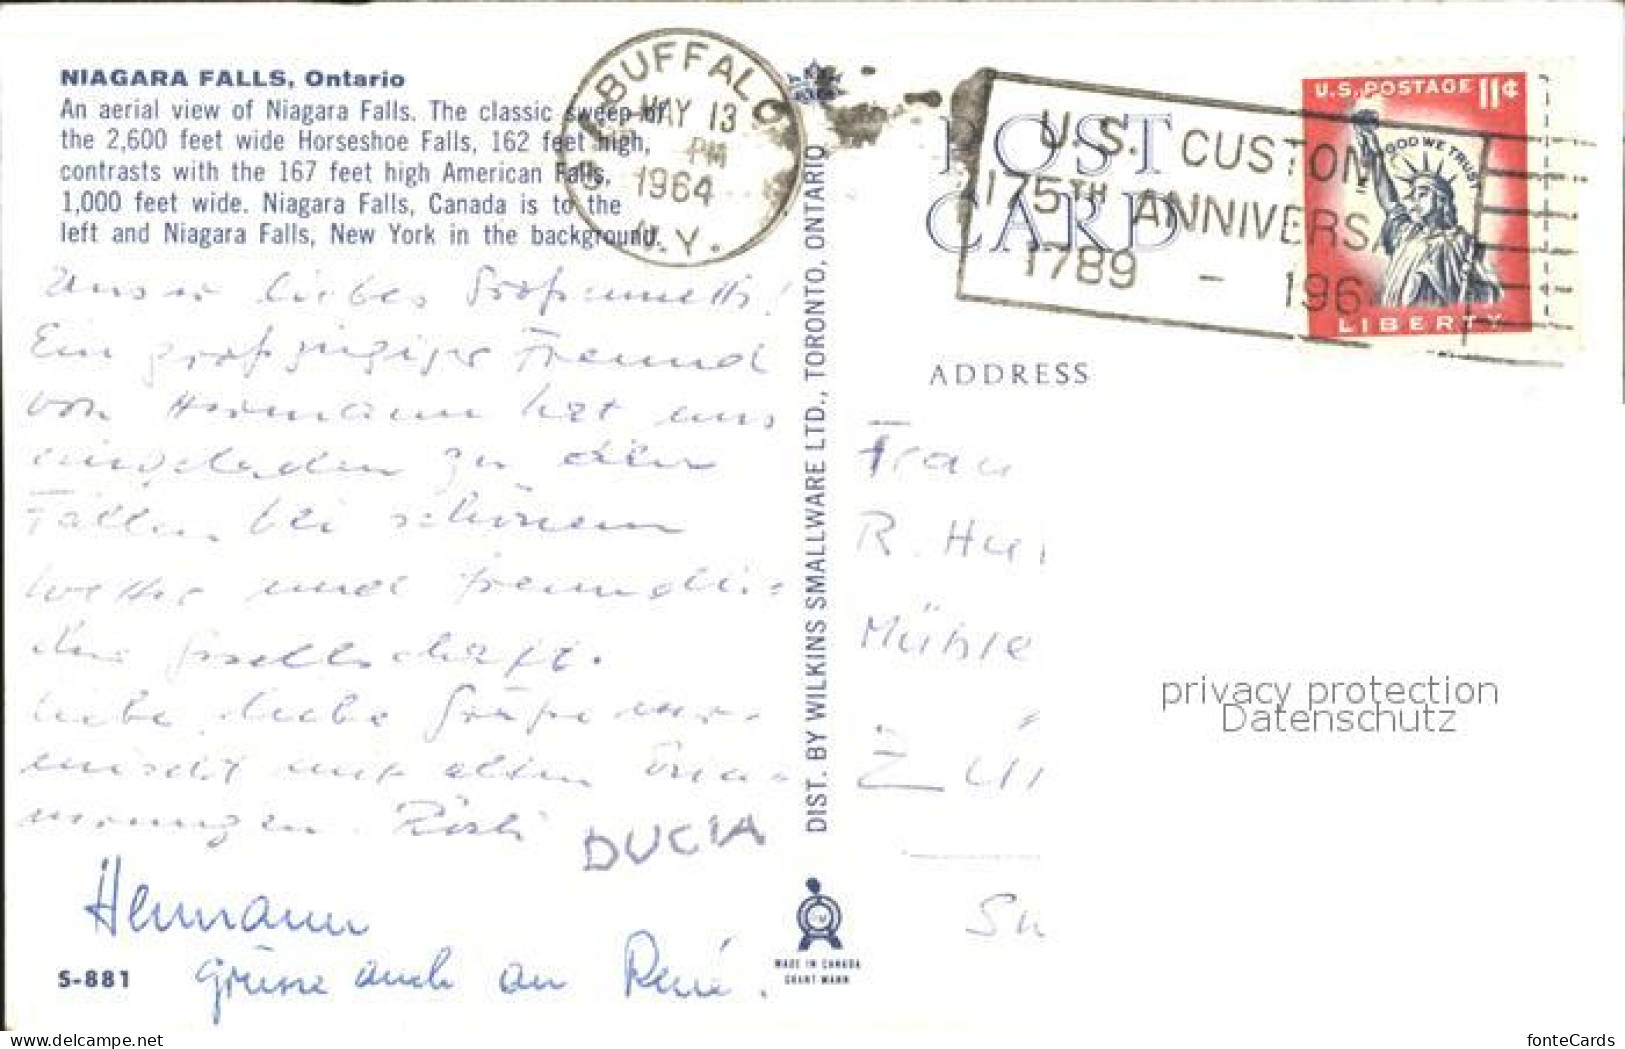 NIAGARA FALLS, Ontario
An aerial view of Niagara Falls. The classic sweep of
the 2,600 feet wide Horseshoe Falls, 162 feet high,
contrasts with the 167 feet high American Falls,
1,000 feet wide. Niagara Falls, Canada is to the
left and Niagara Falls, New York in the background.
BUFFALO
MAY 13
PM
1964
N.Y.
POST CARD
U.S. CUSTOM
175TH ANNIVERSA
1789 - 196
U.S. POSTAGE 11¢
IN GOD WE TRUST
LIBERTY
ADDRESS
Unser liebes Großmuetti!
Ein großzügiger Freund
von Hermann hat uns
eingeladen zu den
Fällen bei schönem
Wetter und freundli-
cher Gesellschaft.
Liebe, liebe Grüße ver-
mischt mit alten Erin-
nerungen. Rösli
DUCIA
Hermann
Grüsse auch an René.
S-881
DIST. BY WILKINS SMALLWARE LTD., TORONTO, ONTARIO
MADE IN CANADA
GRANT MANN
Frau
R. Hu
Mühle
Zü
privacy protection
Datenschutz
picclick.com
fonteCards